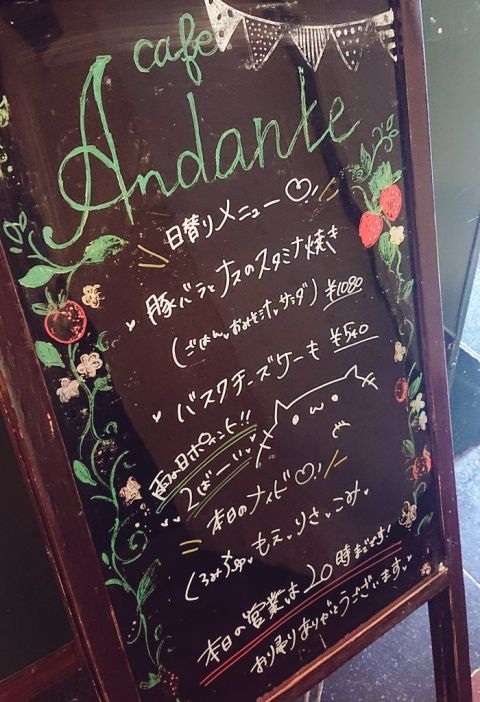 cafe
Andante
日替りメニュー♡
豚バラとナスのスタミナ焼き
(ごはん、おみそ汁、サラダ) ¥1080
バスクチーズケーキ ¥540
雨の日ポイント!!
2ばーい
本日のメイド♡
もえ、りさ、こみ
本日の営業は20時までです!
お帰りありがとうございます